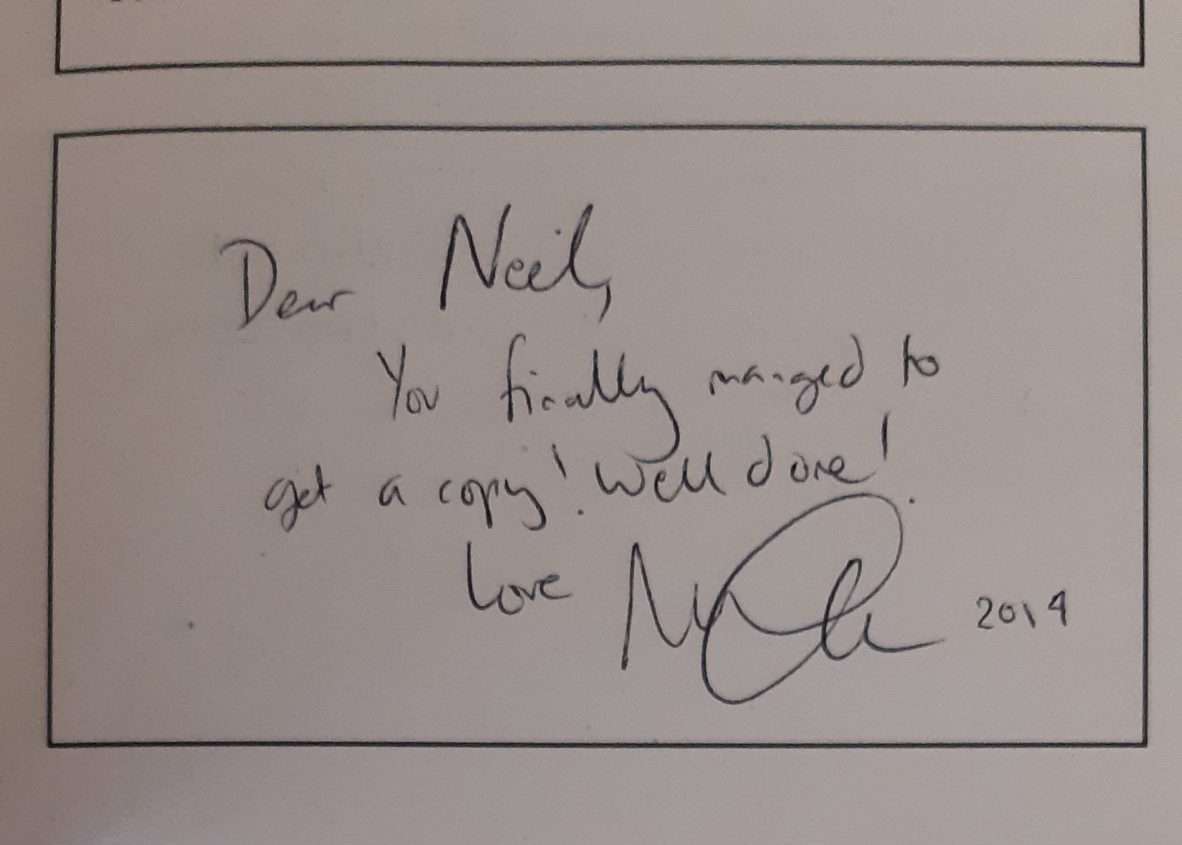 Dear Neil,
You finally managed to
get a copy! Well done!
Love
2019